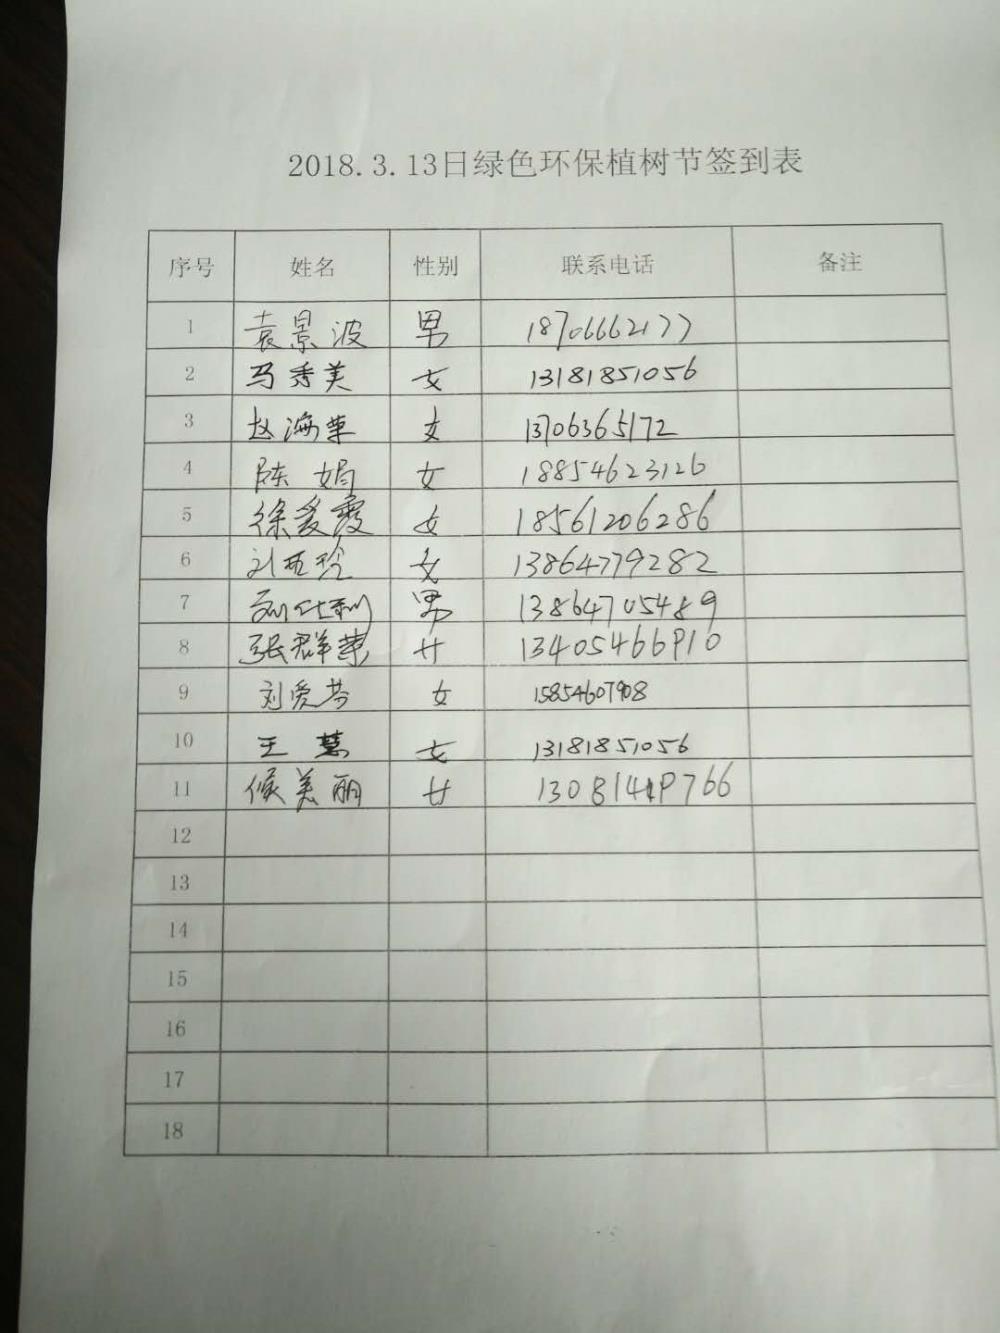 2018.3.13日绿色环保植树节签到表
序号 姓名 性别 联系电话 备注
1 袁景波 男 18706662177
2 马秀美 女 13181851056
3 赵海荣 女 13706365172
4 陈娟 女 18854623126
5 徐爱霞 女 18561206286
6 刘玲 女 13864779282
7 刘仕利 男 13864705489
8 张群英 女 13405466910
9 刘爱芬 女 15854607908
10 王慧 女 13181851056
11 候美丽 女
12
13
14
15
16
17
18